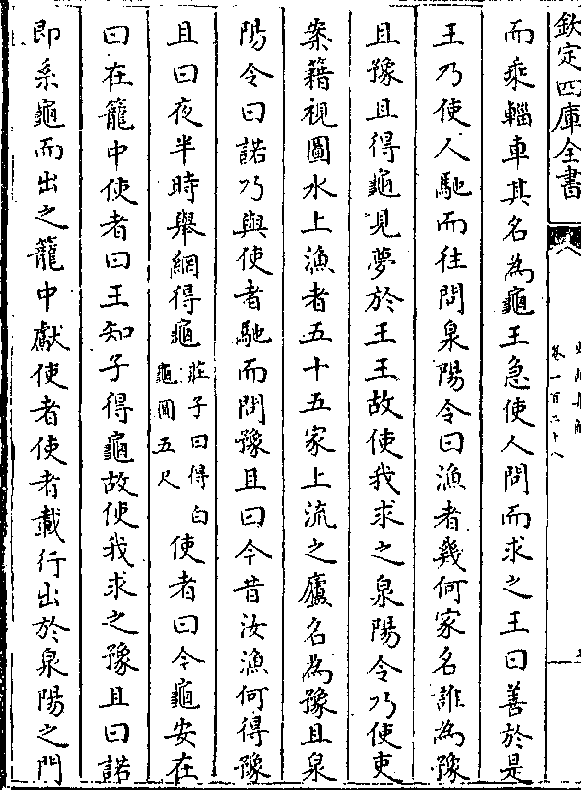 欽定四庫全書
卷一百二十八
而乘輜車其名為龜王急使人問而求之王曰善於是
王乃使人馳而往問泉陽令曰漁者幾何家名誰為豫
且豫且得龜見夢於王王故使我求之泉陽令乃使吏
案籍視圖水上漁者五十五家上流之廬名為豫且泉
陽令曰諾乃與使者馳而問豫且曰今昔汝漁何得豫
且曰夜半時舉網得龜莊子曰得白龜圓五尺使者曰今龜安在
曰在籠中使者曰王知子得龜故使我求之豫且曰諾
即系龜而出之籠中獻使者使者載行出於泉陽之門